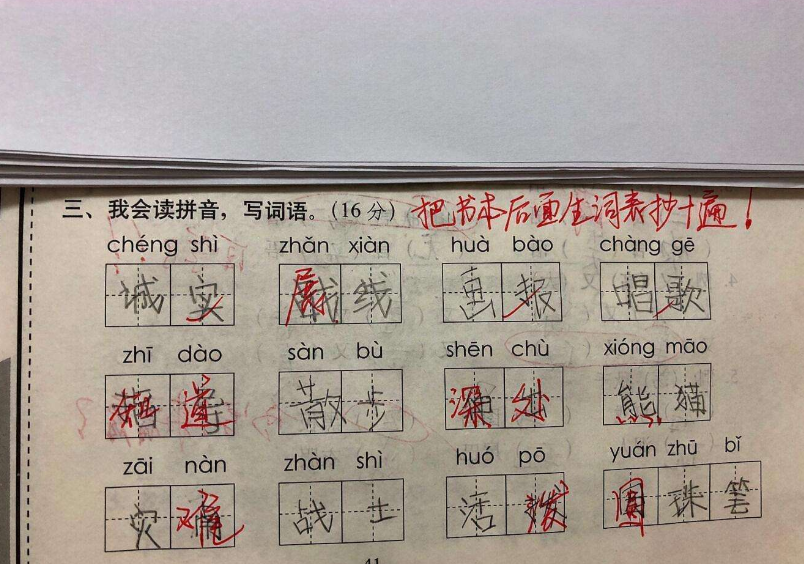 三、我会读拼音，写词语。（16分）把书本后面生词表抄十遍！
chéng shì zhǎn xiàn huà bào chàng gē
诚实 展线 画报 唱歌
zhī dào sàn bù shēn chù xióng māo
知道 散步 深处 熊猫
zāi nàn zhàn shì huó pō yuán zhū bǐ
灾难 战士 活泼 圆珠笔
41